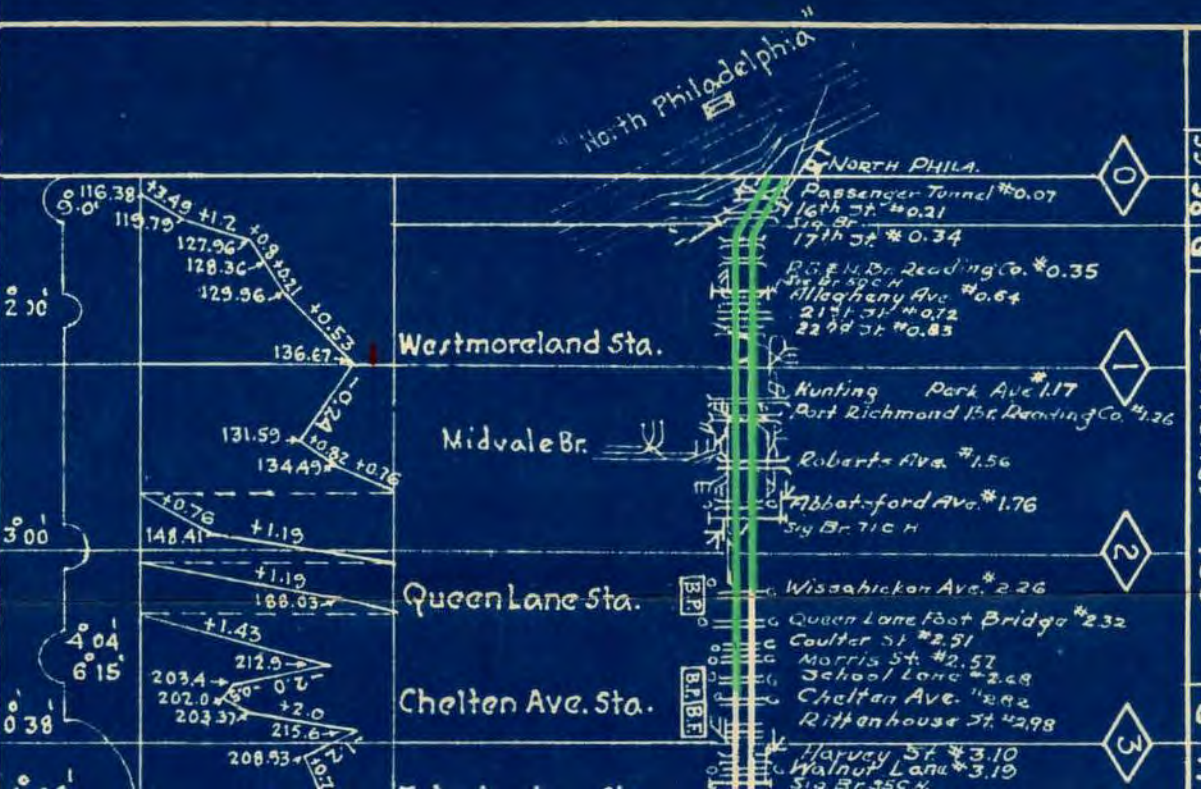 "North Philadelphia"
NORTH PHILA.
0
Passenger Tunnel #0.07
16th St. #0.21
Sig Br.
17th St. #0.34
P.G.& N. Br. Reading Co. #0.35
Sig Br 50 C H
Allegheny Ave #0.64
21st St #0.72
22nd St. #0.83
1
Hunting Park Ave #1.17
Port Richmond Br. Reading Co. #1.26
Roberts Ave. #1.56
Abbotsford Ave. #1.76
Sig Br. 71 C H
2
Wissahickon Ave. #2.26
Queen Lane Foot Bridge #2.32
Coulter St #2.51
Morris St. #2.57
School Lane #2.68
Chelten Ave. #2.82
Rittenhouse St. #2.98
3
Harvey St #3.10
Walnut Lane #3.19
Sig Br 95 C H
Westmoreland Sta.
Midvale Br.
Queen Lane Sta.
B.P.
Chelten Ave. Sta.
B.P.B.F.
116.38
+3.49
119.79
+1.2
127.96
+0.8
128.36
+0.21
129.96
+0.53
136.67
-0.24
131.59
+0.82
134.49
+0.76
+0.76
148.41
+1.19
+1.19
188.03
+1.43
212.9
-2.0
203.4
202.0
203.37
+2.0
215.6
-1.2
208.93
9°0'
3°00'
4°04'
6°15'
0°38'